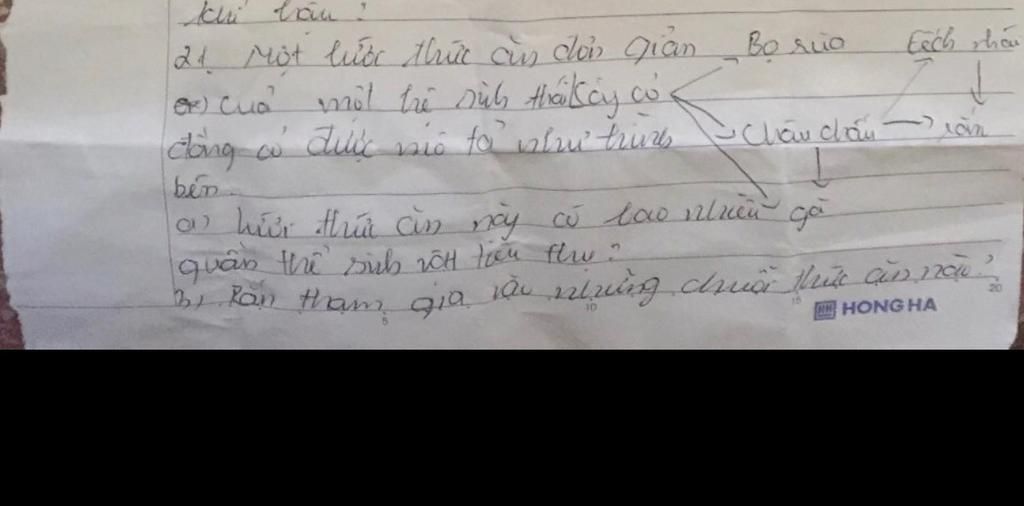 khí hậu?
21, Một lưới thức ăn đơn giản Bọ rùa Ếch nhái
của một hệ sinh thái cây cỏ
đồng cỏ được mô tả như hình Châu chấu rắn
bên
a) lưới thức ăn này có bao nhiêu gà
quần thể sinh vật tiêu thụ?
3, Rắn tham gia vào những chuỗi thức ăn nào?
5 10 15 20
HONG HA